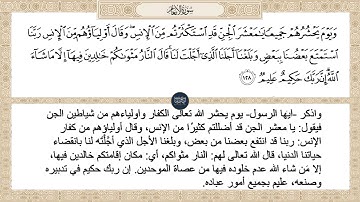 سورة الأنعام
وَيَوْمَ يَحْشُرُهُمْ جَمِيعًا يَٰمَعْشَرَ ٱلْجِنِّ قَدِ ٱسْتَكْثَرْتُم مِّنَ ٱلْإِنسِ ۖ وَقَالَ أَوْلِيَآؤُهُم مِّنَ ٱلْإِنسِ رَبَّنَا
ٱسْتَمْتَعَ بَعْضُنَا بِبَعْضٍ وَبَلَغْنَآ أَجَلَنَا ٱلَّذِىٓ أَجَّلْتَ لَنَا ۚ قَالَ ٱلنَّارُ مَثْوَىٰكُمْ خَٰلِدِينَ فِيهَآ إِلَّا مَا شَآءَ
ٱللَّهُ ۗ إِنَّ رَبَّكَ حَكِيمٌ عَلِيمٌ ١٢٨
واذكر -أيها الرسول- يوم يحشر الله تعالى الكفار وأولياءهم من شياطين الجن
فيقول: يا معشر الجن قد أضللتم كثيرًا من الإنس، وقال أولياؤهم من كفار
الإنس: ربنا قد انتفع بعضنا من بعض، وبلغنا الأجل الذي أجَّلْتَه لنا بانقضاء
حياتنا الدنيا، قال الله تعالى لهم: النار مثواكم، أي: مكان إقامتكم خالدين فيها،
إلا مَن شاء الله عدم خلوده فيها من عصاة الموحدين. إن ربك حكيم في تدبيره
وصنعه، عليم بجميع أمور عباده.